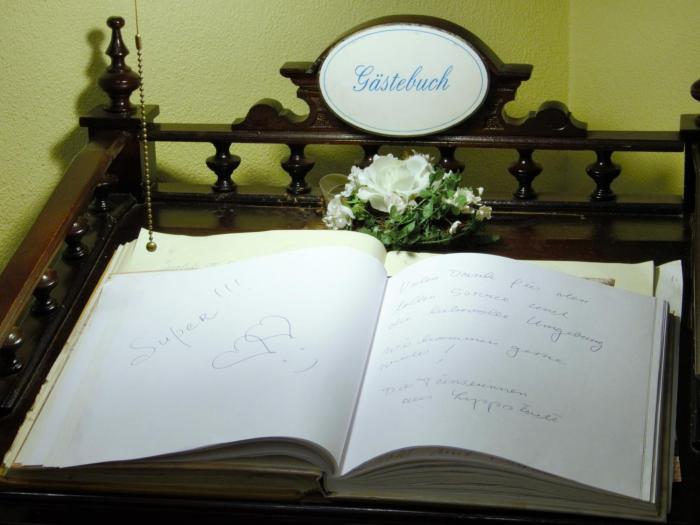 Gästebuch
Super!!!
Vielen Dank für den
tollen Service und
die liebevolle Umgebung
wir kommen gerne
wieder!
Die Tänzerinnen
aus Lippstadt